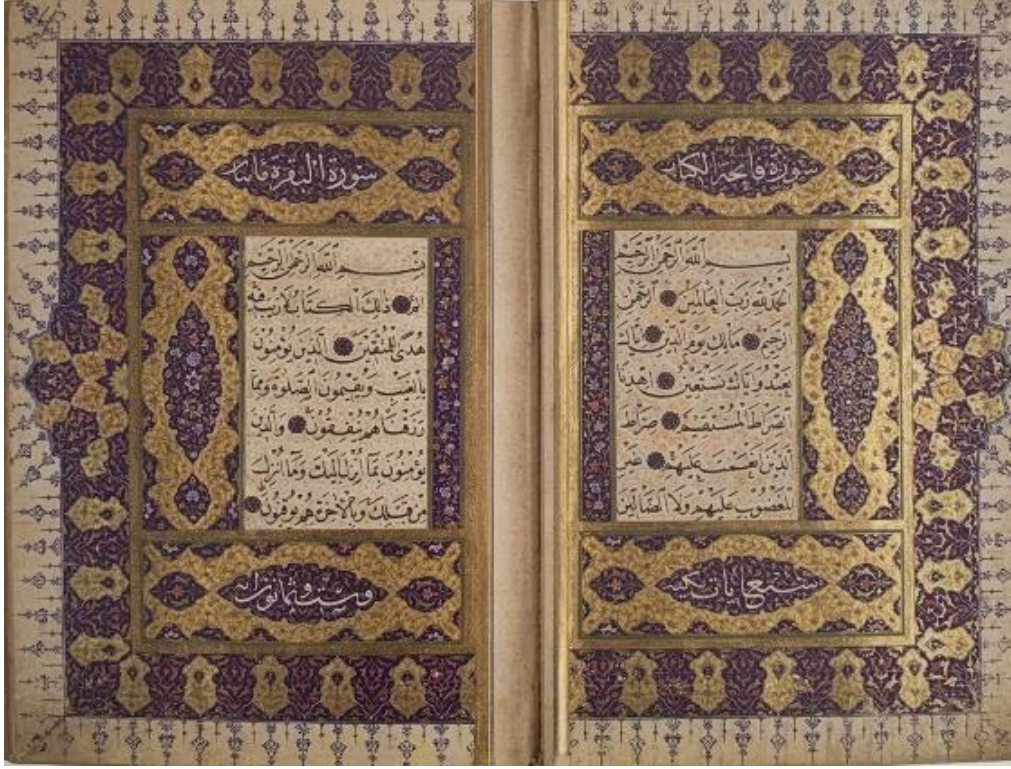 سورة فاتحة الكتاب
بسم الله الرحمن الرحيم
الحمد لله رب العالمين الرحمن
الرحيم مالك يوم الدين اياك
نعبد واياك نستعين اهدنا
الصراط المستقيم صراط
الذين انعمت عليهم غير
المغضوب عليهم ولا الضالين
سبع ايات مكية
سورة البقرة مائتان
بسم الله الرحمن الرحيم
الم ذلك الكتاب لا ريب فيه
هدى للمتقين الذين يؤمنون
بالغيب ويقيمون الصلوة ومما
رزقناهم ينفقون والذين
يؤمنون بما انزل اليك وما انزل
من قبلك وبالاخرة هم يوقنون
وست وثمانون اية